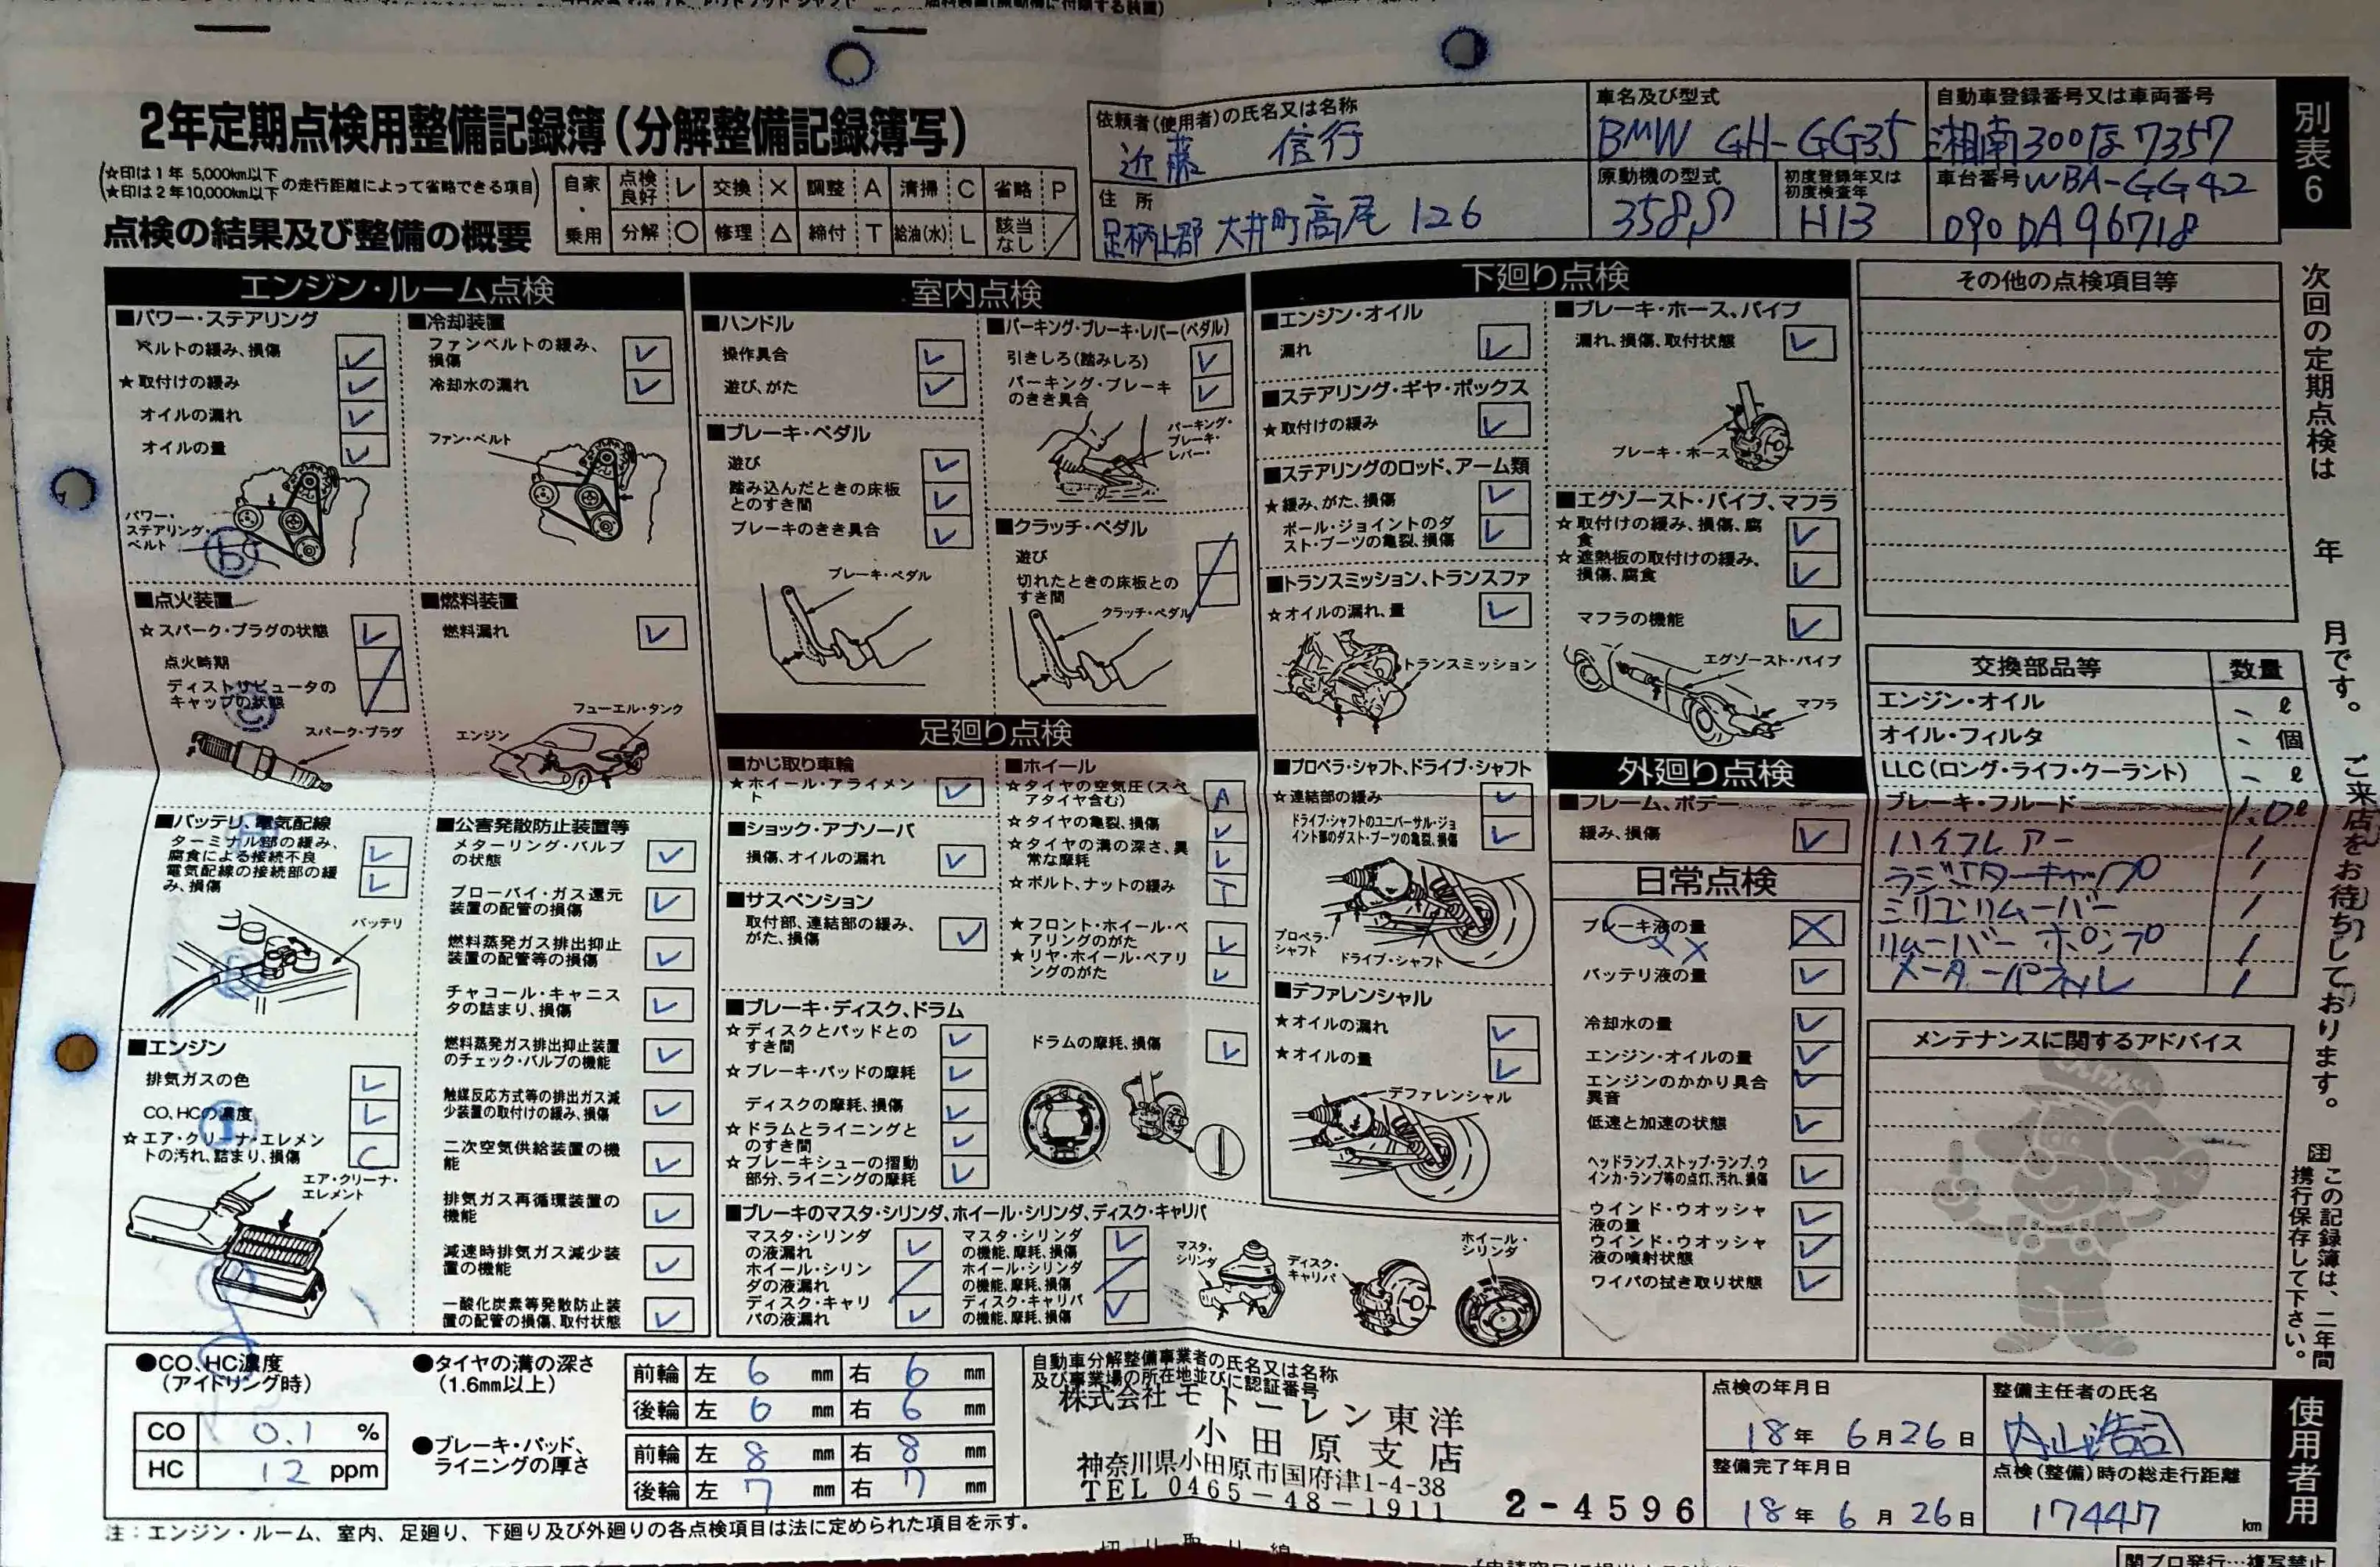 2年定期点検用整備記録簿(分解整備記録簿写)
(☆印は1年 5,000km以下
★印は2年10,000km以下の走行距離によって省略できる項目)
点検の結果及び整備の概要
自家・乗用
点検良好 レ 交換 × 調整 A 清掃 C 省略 P
分解 ○ 修理 △ 締付 T 給油(水) L 該当なし ／
依頼者(使用者)の氏名又は名称
近藤 信行
住所
足柄上郡 大井町高尾 126
車名及び型式
BMW GH-GG35
原動機の型式
358S
初度登録年又は初度検査年
H13
自動車登録番号又は車両番号
湘南300な7357
車台番号 WBA-GG42
090DA96718
別表6
エンジン・ルーム点検
■パワー・ステアリング
ベルトの緩み、損傷 レ
★取付けの緩み レ
オイルの漏れ レ
オイルの量 レ
パワー・
ステアリング・
ベルト
■冷却装置
ファンベルトの緩み、
損傷 レ
冷却水の漏れ レ
ファン・ベルト
■点火装置
☆スパーク・プラグの状態 レ
点火時期 ／
ディストリビュータの
キャップの状態
スパーク・プラグ
■燃料装置
燃料漏れ レ
エンジン
フューエル・タンク
■バッテリ、電気配線
ターミナル部の緩み、
腐食による接続不良 レ
電気配線の接続部の緩
み、損傷 レ
バッテリ
■エンジン
排気ガスの色 レ
CO、HCの濃度 レ
☆エア・クリーナ・エレメン
トの汚れ、詰まり、損傷 C
エア・クリーナ・
エレメント
■公害発散防止装置等
メターリング・バルブ
の状態 レ
ブローバイ・ガス還元
装置の配管の損傷 レ
燃料蒸発ガス排出抑止
装置の配管等の損傷 レ
チャコール・キャニス
タの詰まり、損傷 レ
燃料蒸発ガス排出抑止装置
のチェック・バルブの機能 レ
触媒反応方式等の排出ガス減
少装置の取付けの緩み、損傷 レ
二次空気供給装置の機
能 レ
排気ガス再循環装置の
機能 レ
減速時排気ガス減少装
置の機能 レ
一酸化炭素等発散防止装
置の配管の損傷、取付状態 レ
室内点検
■ハンドル
操作具合 レ
遊び、がた レ
■ブレーキ・ペダル
遊び レ
踏み込んだときの床板
とのすき間 レ
ブレーキのきき具合 レ
ブレーキ・ペダル
■パーキング・ブレーキ・レバー(ペダル)
引きしろ(踏みしろ) レ
パーキング・ブレーキ
のきき具合 レ
パーキング・
ブレーキ・
レバー・
■クラッチ・ペダル
遊び ／
切れたときの床板との
すき間
クラッチ・ペダル
足廻り点検
■かじ取り車輪
★ホイール・アライメン
ト レ
■ショック・アブソーバ
損傷、オイルの漏れ レ
■サスペンション
取付部、連結部の緩み、
がた、損傷 レ
■ホイール
☆タイヤの空気圧(スペ
アタイヤ含む) A
☆タイヤの亀裂、損傷 レ
☆タイヤの溝の深さ、異
常な摩耗 レ
☆ボルト、ナットの緩み T
★フロント・ホイール・ベ
アリングのがた レ
★リヤ・ホイール・ベアリ
ングのがた レ
■ブレーキ・ディスク、ドラム
☆ディスクとパッドとの
すき間 レ
☆ブレーキ・パッドの摩耗 レ
ディスクの摩耗、損傷 レ
☆ドラムとライニングと
のすき間 レ
☆ブレーキシューの摺動
部分、ライニングの摩耗 レ
ドラムの摩耗、損傷 レ
■ブレーキのマスタ・シリンダ、ホイール・シリンダ、ディスク・キャリパ
マスタ・シリンダ
の液漏れ レ
ホイール・シリン
ダの液漏れ ／
ディスク・キャリ
パの液漏れ レ
マスタ・シリンダ
の機能、摩耗、損傷 レ
ホイール・シリンダ
の機能、摩耗、損傷 ／
ディスク・キャリパ
の機能、摩耗、損傷 レ
マスタ・
シリンダ
ディスク・
キャリパ
ホイール・
シリンダ
下廻り点検
■エンジン・オイル
漏れ レ
■ステアリング・ギヤ・ボックス
★取付けの緩み レ
■ステアリングのロッド、アーム類
★緩み、がた、損傷 レ
ボール・ジョイントのダ
スト・ブーツの亀裂、損傷 レ
■トランスミッション、トランスファ
☆オイルの漏れ、量 レ
トランスミッション
■プロペラ・シャフト、ドライブ・シャフト
☆連結部の緩み レ
ドライブ・シャフトのユニバーサル・ジョ
イント部のダスト・ブーツの亀裂、損傷 レ
プロペラ・
シャフト
ドライブ・シャフト
■デファレンシャル
★オイルの漏れ レ
★オイルの量 レ
デファレンシャル
■ブレーキ・ホース、パイプ
漏れ、損傷、取付状態 レ
ブレーキ・ホース
■エグゾースト・パイプ、マフラ
☆取付けの緩み、損傷、腐
食 レ
☆遮熱板の取付けの緩み、
損傷、腐食 レ
マフラの機能 レ
エグゾースト・パイプ
マフラ
外廻り点検
■フレーム、ボデー
緩み、損傷 レ
日常点検
ブレーキ液の量 ×
××
バッテリ液の量 レ
冷却水の量 レ
エンジン・オイルの量 レ
エンジンのかかり具合
異音 レ
低速と加速の状態 レ
ヘッドランプ、ストップ・ランプ、ウ
インカ・ランプ等の点灯、汚れ、損傷 レ
ウインド・ウオッシャ
液の量 レ
ウインド・ウオッシャ
液の噴射状態 レ
ワイパの拭き取り状態 レ
その他の点検項目等
交換部品等 数量
エンジン・オイル ℓ
オイル・フィルタ 個
LLC(ロング・ライフ・クーラント) ℓ
ブレーキ・フルード 1.0ℓ
ハイフレアー 1
ラジエターキャップ 1
シリコンリムーバー 1
リムーバー ポンプ 1
メーターパネル 1
メンテナンスに関するアドバイス
次回の定期点検は 年 月です。ご来店をお待ちしております。
注 この記録簿は、二年間
携行保存して下さい。
●CO、HC濃度
(アイドリング時)
CO 0.1 %
HC 12 ppm
●タイヤの溝の深さ
(1.6mm以上)
前輪 左 6 mm 右 6 mm
後輪 左 6 mm 右 6 mm
●ブレーキ・パッド、
ライニングの厚さ
前輪 左 8 mm 右 8 mm
後輪 左 7 mm 右 7 mm
自動車分解整備事業者の氏名又は名称
及び事業場の所在地並びに認証番号
株式会社モトーレン東洋
小田原支店
神奈川県小田原市国府津1-4-38
TEL 0465-48-1911
2-4596
点検の年月日
18年 6月26日
整備完了年月日
18年 6月26日
整備主任者の氏名
内山浩司
点検(整備)時の総走行距離
17447 km
使用者用
注：エンジン・ルーム、室内、足廻り、下廻り及び外廻りの各点検項目は法に定められた項目を示す。
切り取り線
関ブロ発行…複写禁止